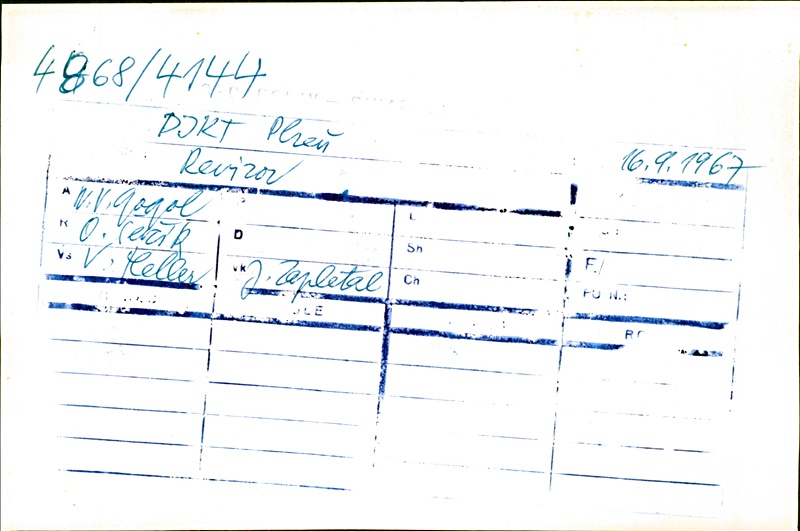 4868/4144
DJKT Plzeň
Revizor
16.9.1967
A N.V. Gogol
L
R O. Ševčík
D
Sh
F./
Vs V. Heller
VK J. Zapletal
Ch
FO N.: